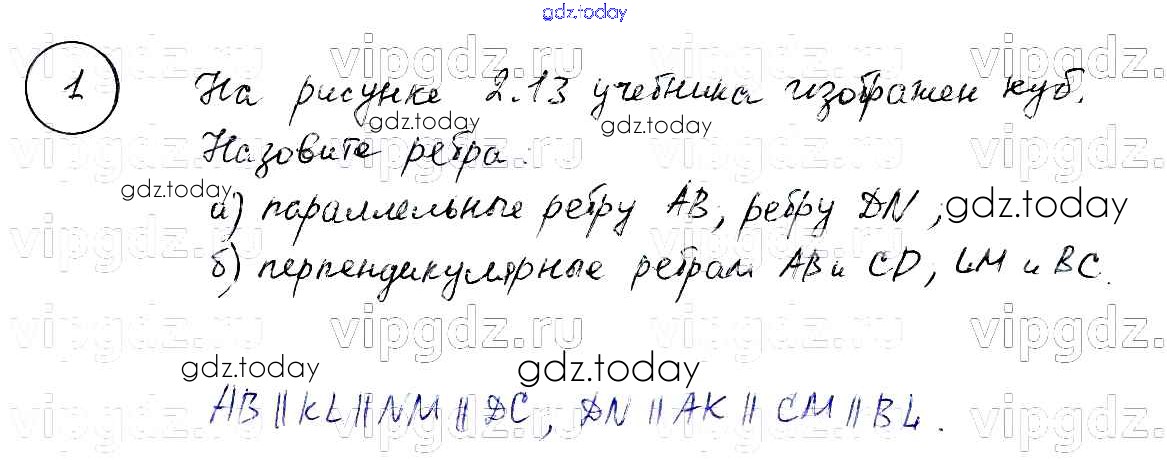 gdz.today
1 На рисунке 2.13 учебника изображен куб.
vipgdz.ru vipgdz.ru vipgdz.ru
gdz.today gdz.today
Назовите ребра:
vipgdz.ru vipgdz.ru vipgdz.ru
gdz.today
а) параллельные ребру AB, ребру DN;
gdz.today
vipgdz.ru vipgdz.ru vipgdz.ru
б) перпендикулярные ребрам AB и CD, LM и BC.
vipgdz.ru vipgdz.ru vipgdz.ru
gdz.today gdz.today
AB || KL || NM || DC, DN || AK || CM || BL.
vipgdz.ru vipgdz.ru vipgdz.ru